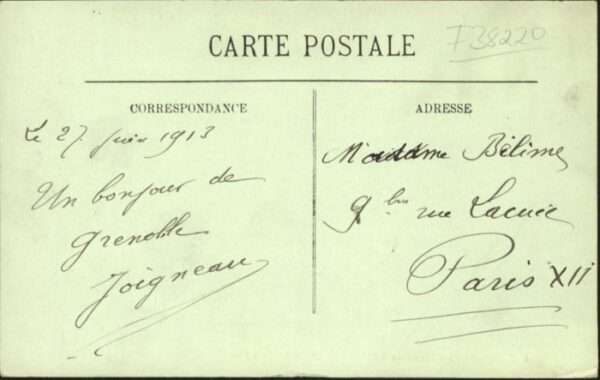 CARTE POSTALE
F38220
CORRESPONDANCE
ADRESSE
Le 27 juin 1913
Un bonjour de
Grenoble
Joigneau
Madame Bélime
9 bis rue Lacuée
Paris XII